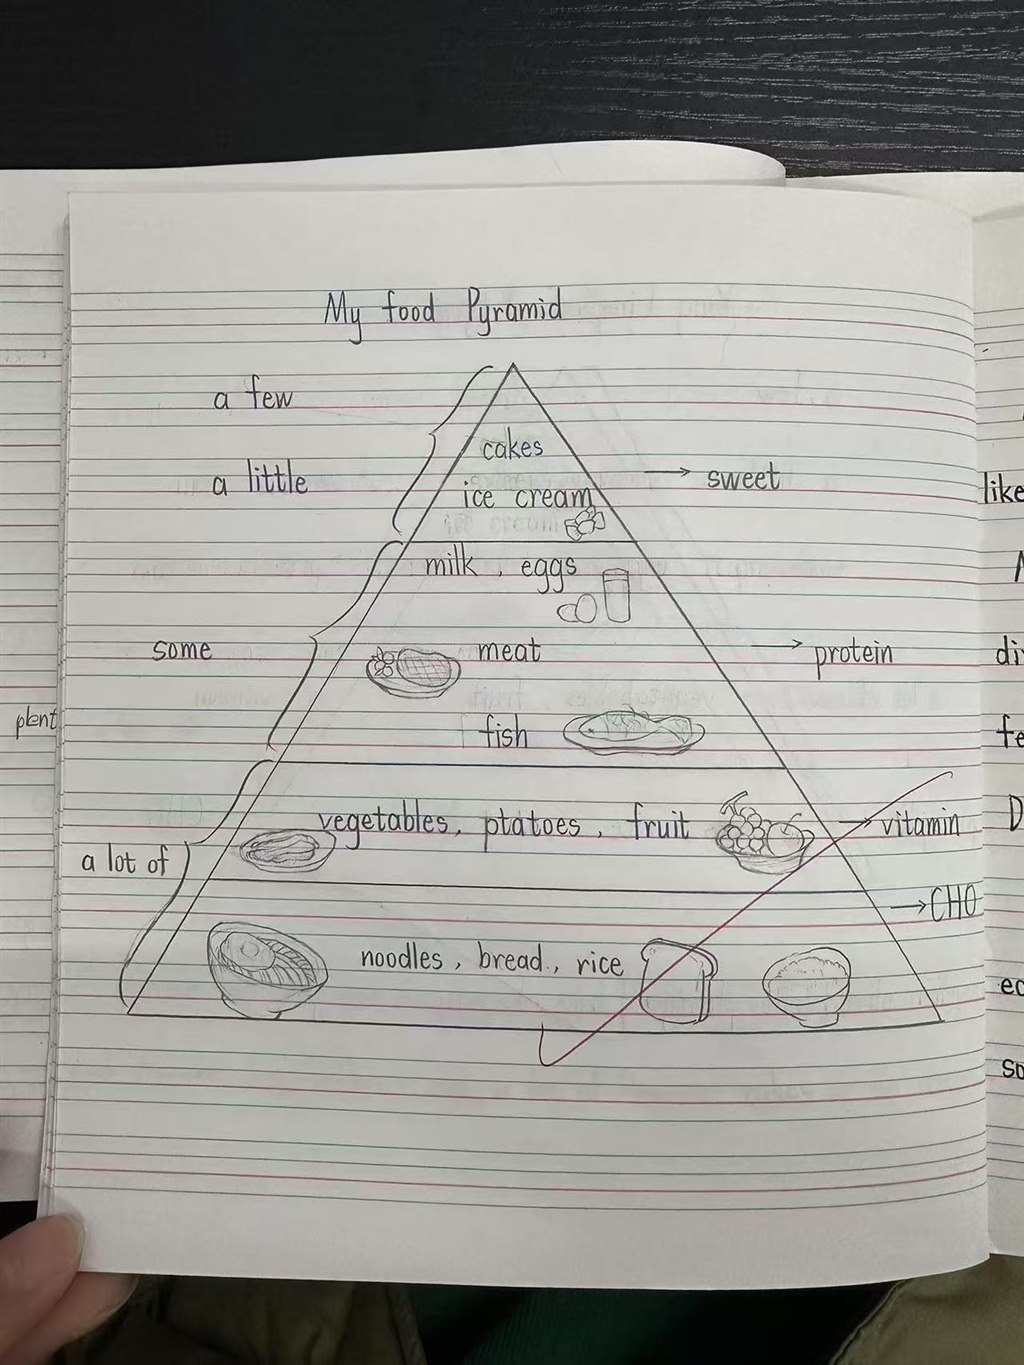 My food Pyramid
a few
cakes
a little
sweet
ice cream
milk, eggs
some
meat
protein
fish
vegetables, ptatoes, fruit
vitamin
a lot of
CHO
noodles, bread, rice
plent
like
di
fe
D
so